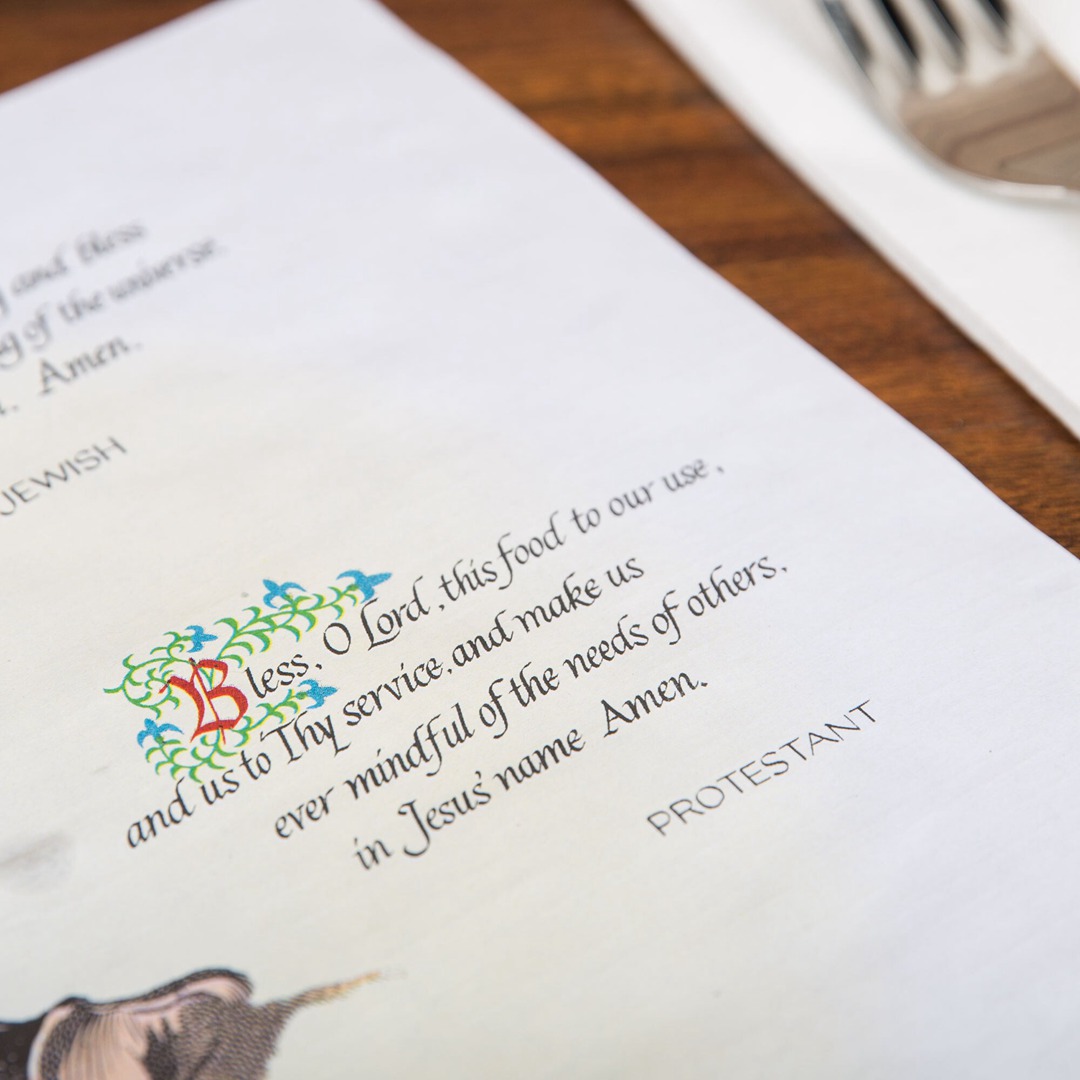 and bless
of the universe.
Amen.
JEWISH
Bless, O Lord, this food to our use,
and us to Thy service, and make us
ever mindful of the needs of others,
in Jesus' name Amen.
PROTESTANT